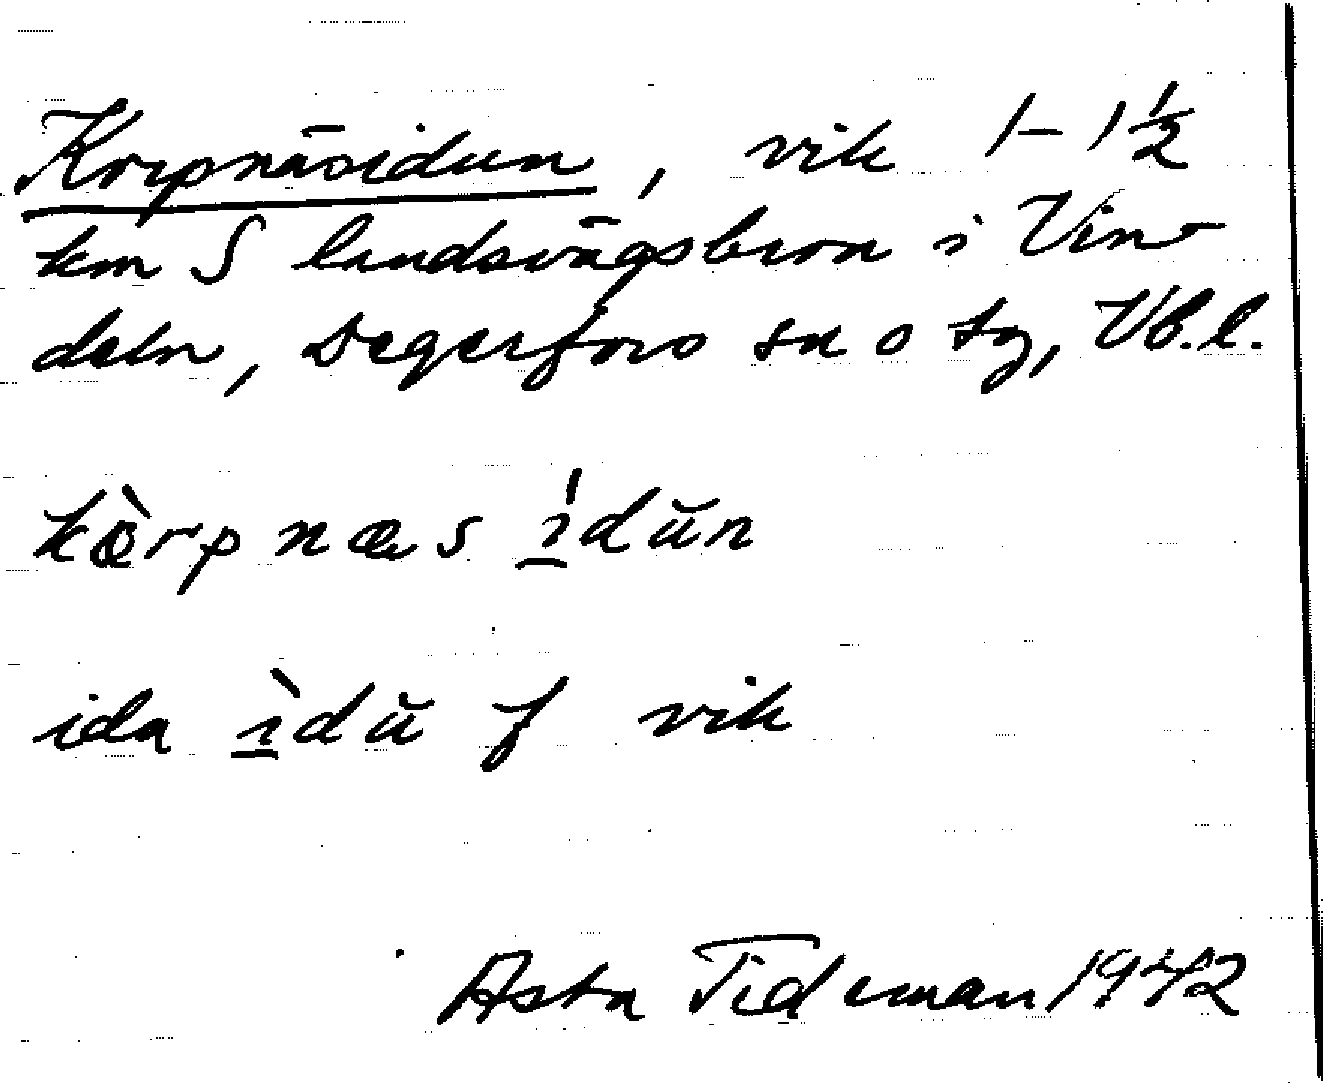 Korpnäsidun, vik 1–1½
km S landsvägsbron i Vin-
deln, Degerfors sn o tg, Vb.l.
kɵ̀rpnæs í̱dŭn
ida ì̱dŭ f vik
Asta Tideman 1942